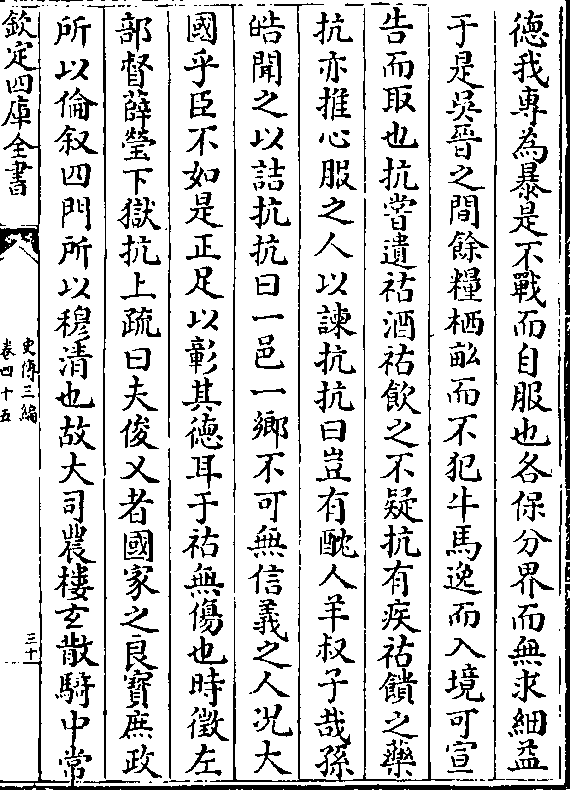 德我專為暴是不戰而自服也各保分界而無求細益
于是吳晉之間餘糧栖畝而不犯牛馬逸而入境可宣
告而取也抗嘗遺祜酒祜飲之不疑抗有疾祜饋之藥
抗亦推心服之人以諫抗抗曰豈有酖人羊叔子哉孫
皓聞之以詰抗抗曰一邑一鄉不可無信義之人况大
國乎臣不如是正足以彰其德耳于祜無傷也時徵左
部督薛瑩下獄抗上疏曰夫俊乂者國家之良寶庶政
所以倫叙四門所以穆清也故大司農樓玄散騎中常
欽定四庫全書
史傳三編
卷四十五
三十